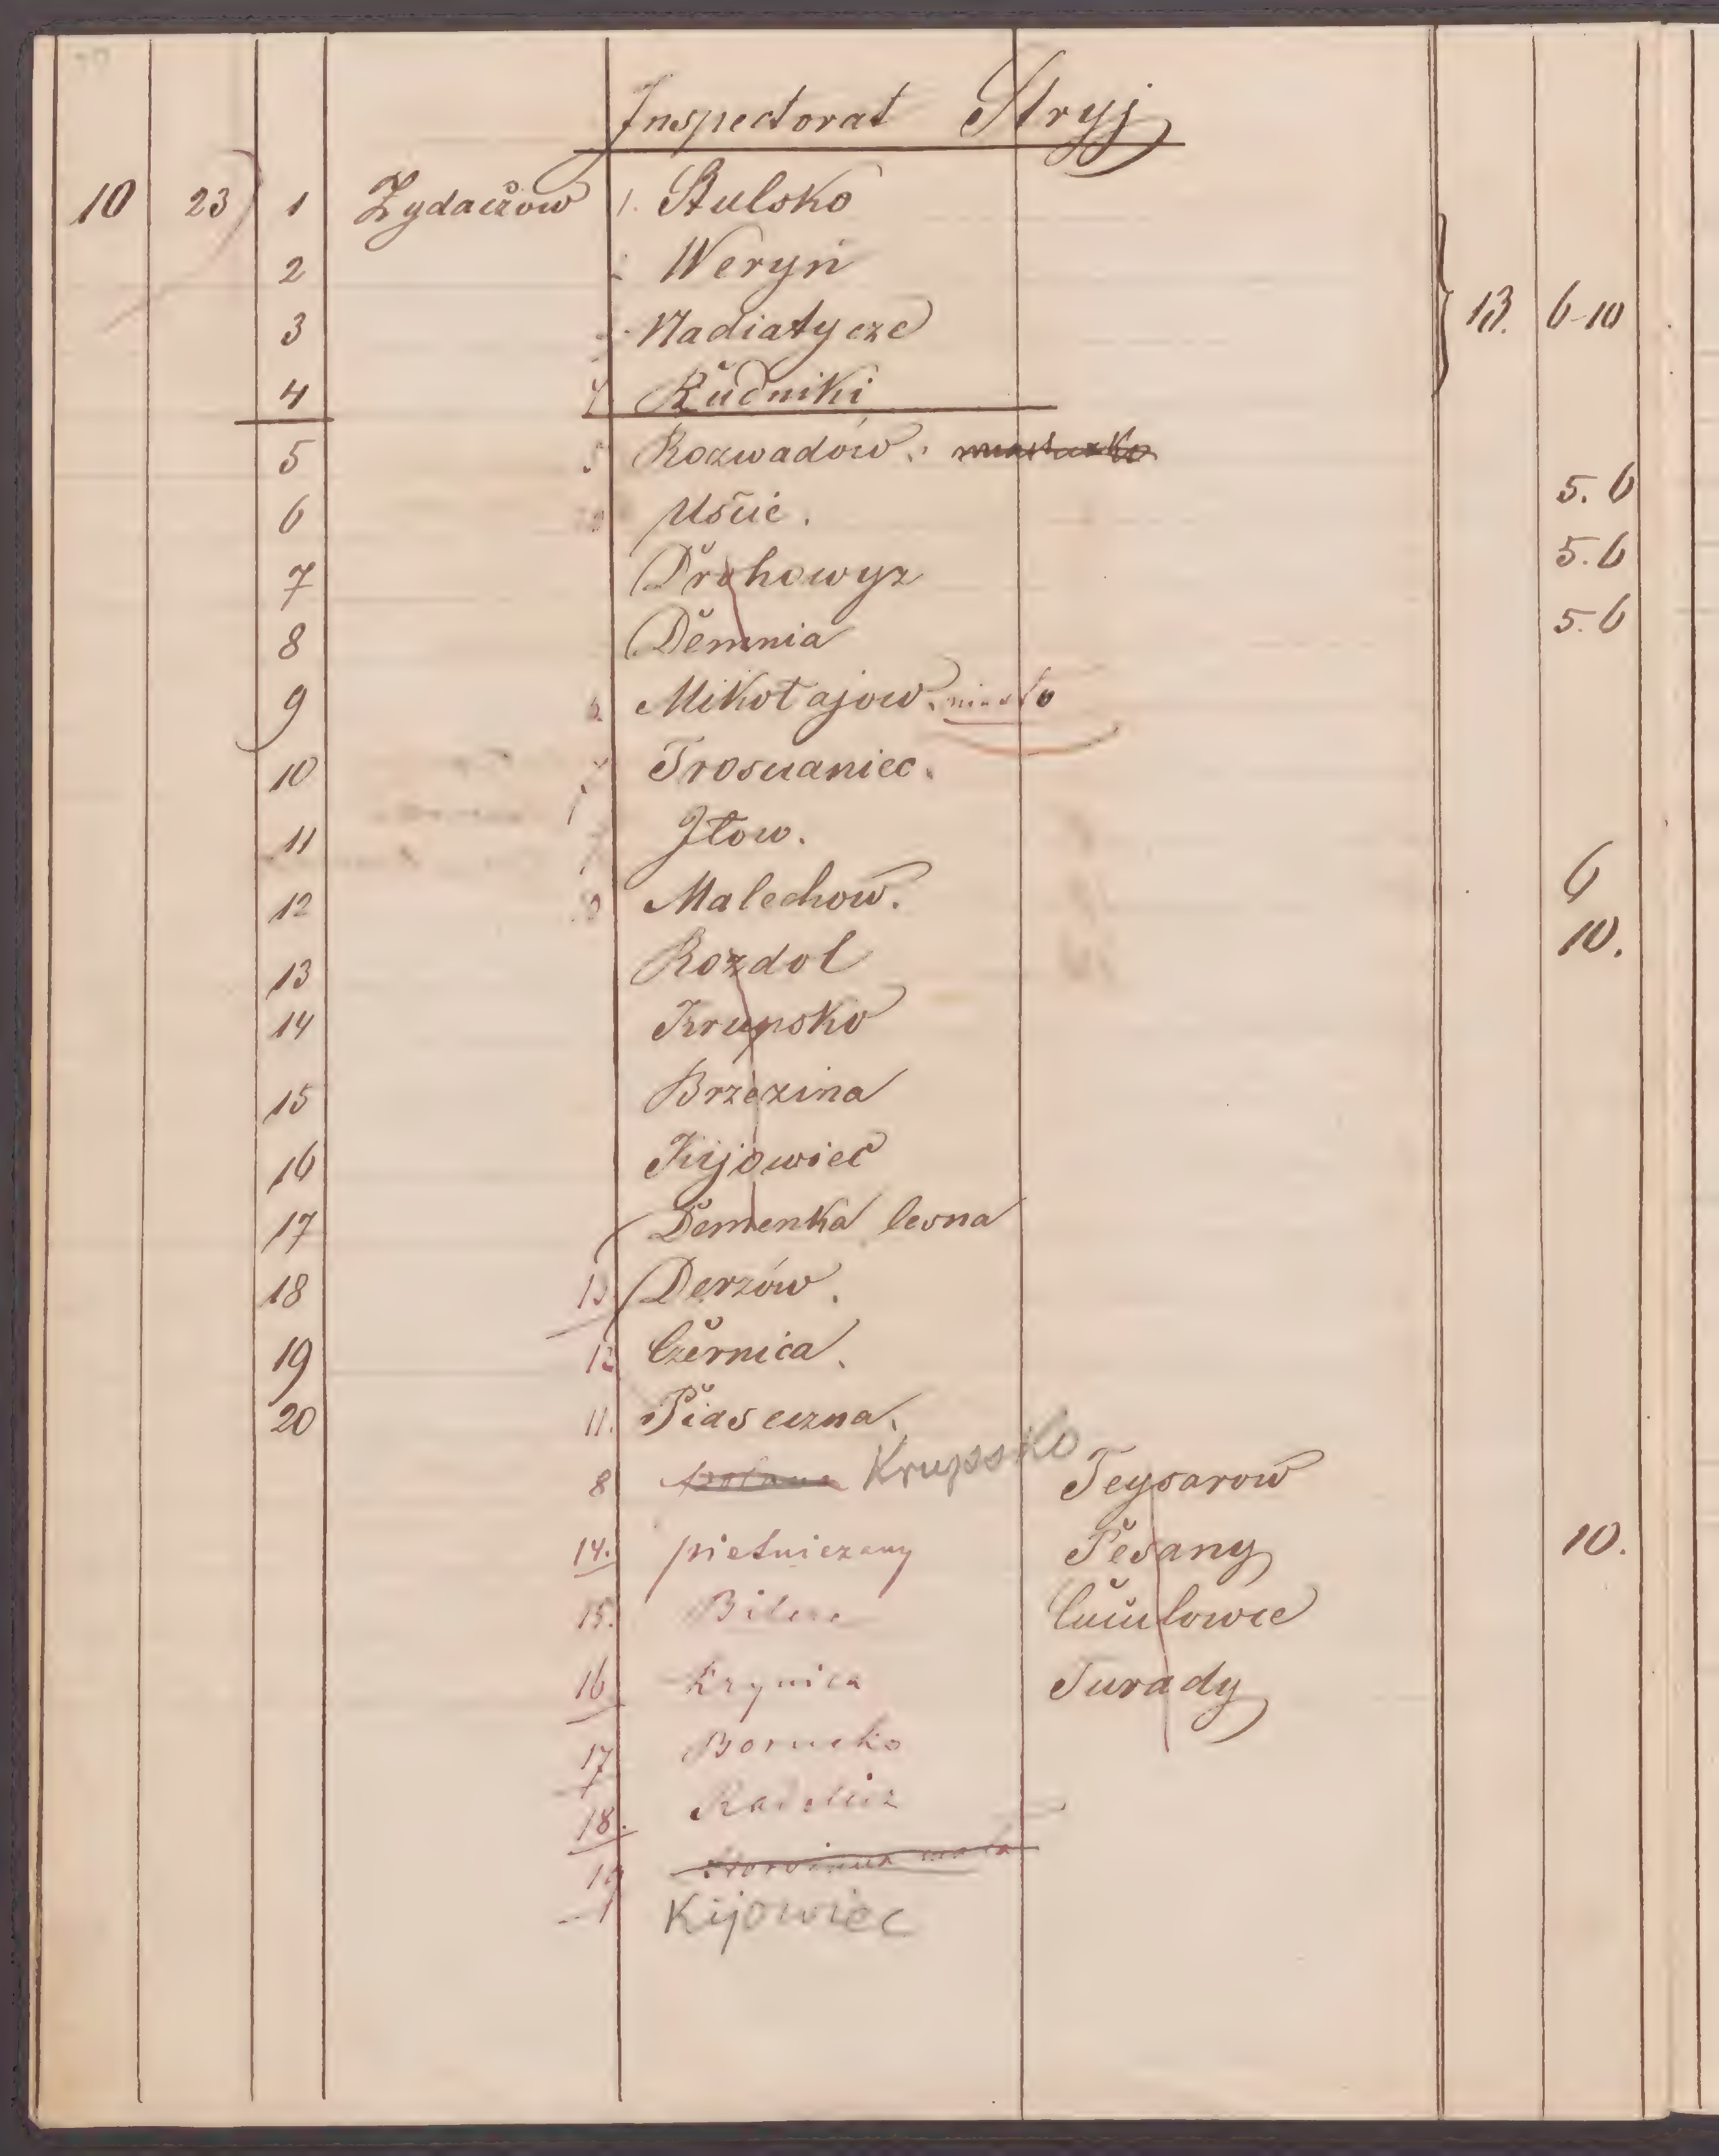 Inspectorat Stryj
10 23 1 Zydaczow 1. Stulsko
2 Weryń
3 Nadiatycze 13. 6-10
4 Rudniki
5 5 Rozwadów.
6 Uscie. 5. 6
7 Drohowyz 5.6
8 Demnia 5.6
9 Mikołajow. miasto
10 Troscianiec.
11 Iłow.
12 Malechow. 6
13 Rozdol 10.
14 Krupsko
15 Brzezina
16 Kijowiec
17 Demenka lesna
18 Derzów.
19 12 Czernica.
20 11. Piaseczna.
8 Krupsko Teysarow
14. pietniczany Pesany 10.
15. Bilcze Cuculowce
16 Krynica Turady
17 Bornicko
18. Radelicz
19
Kijowiec